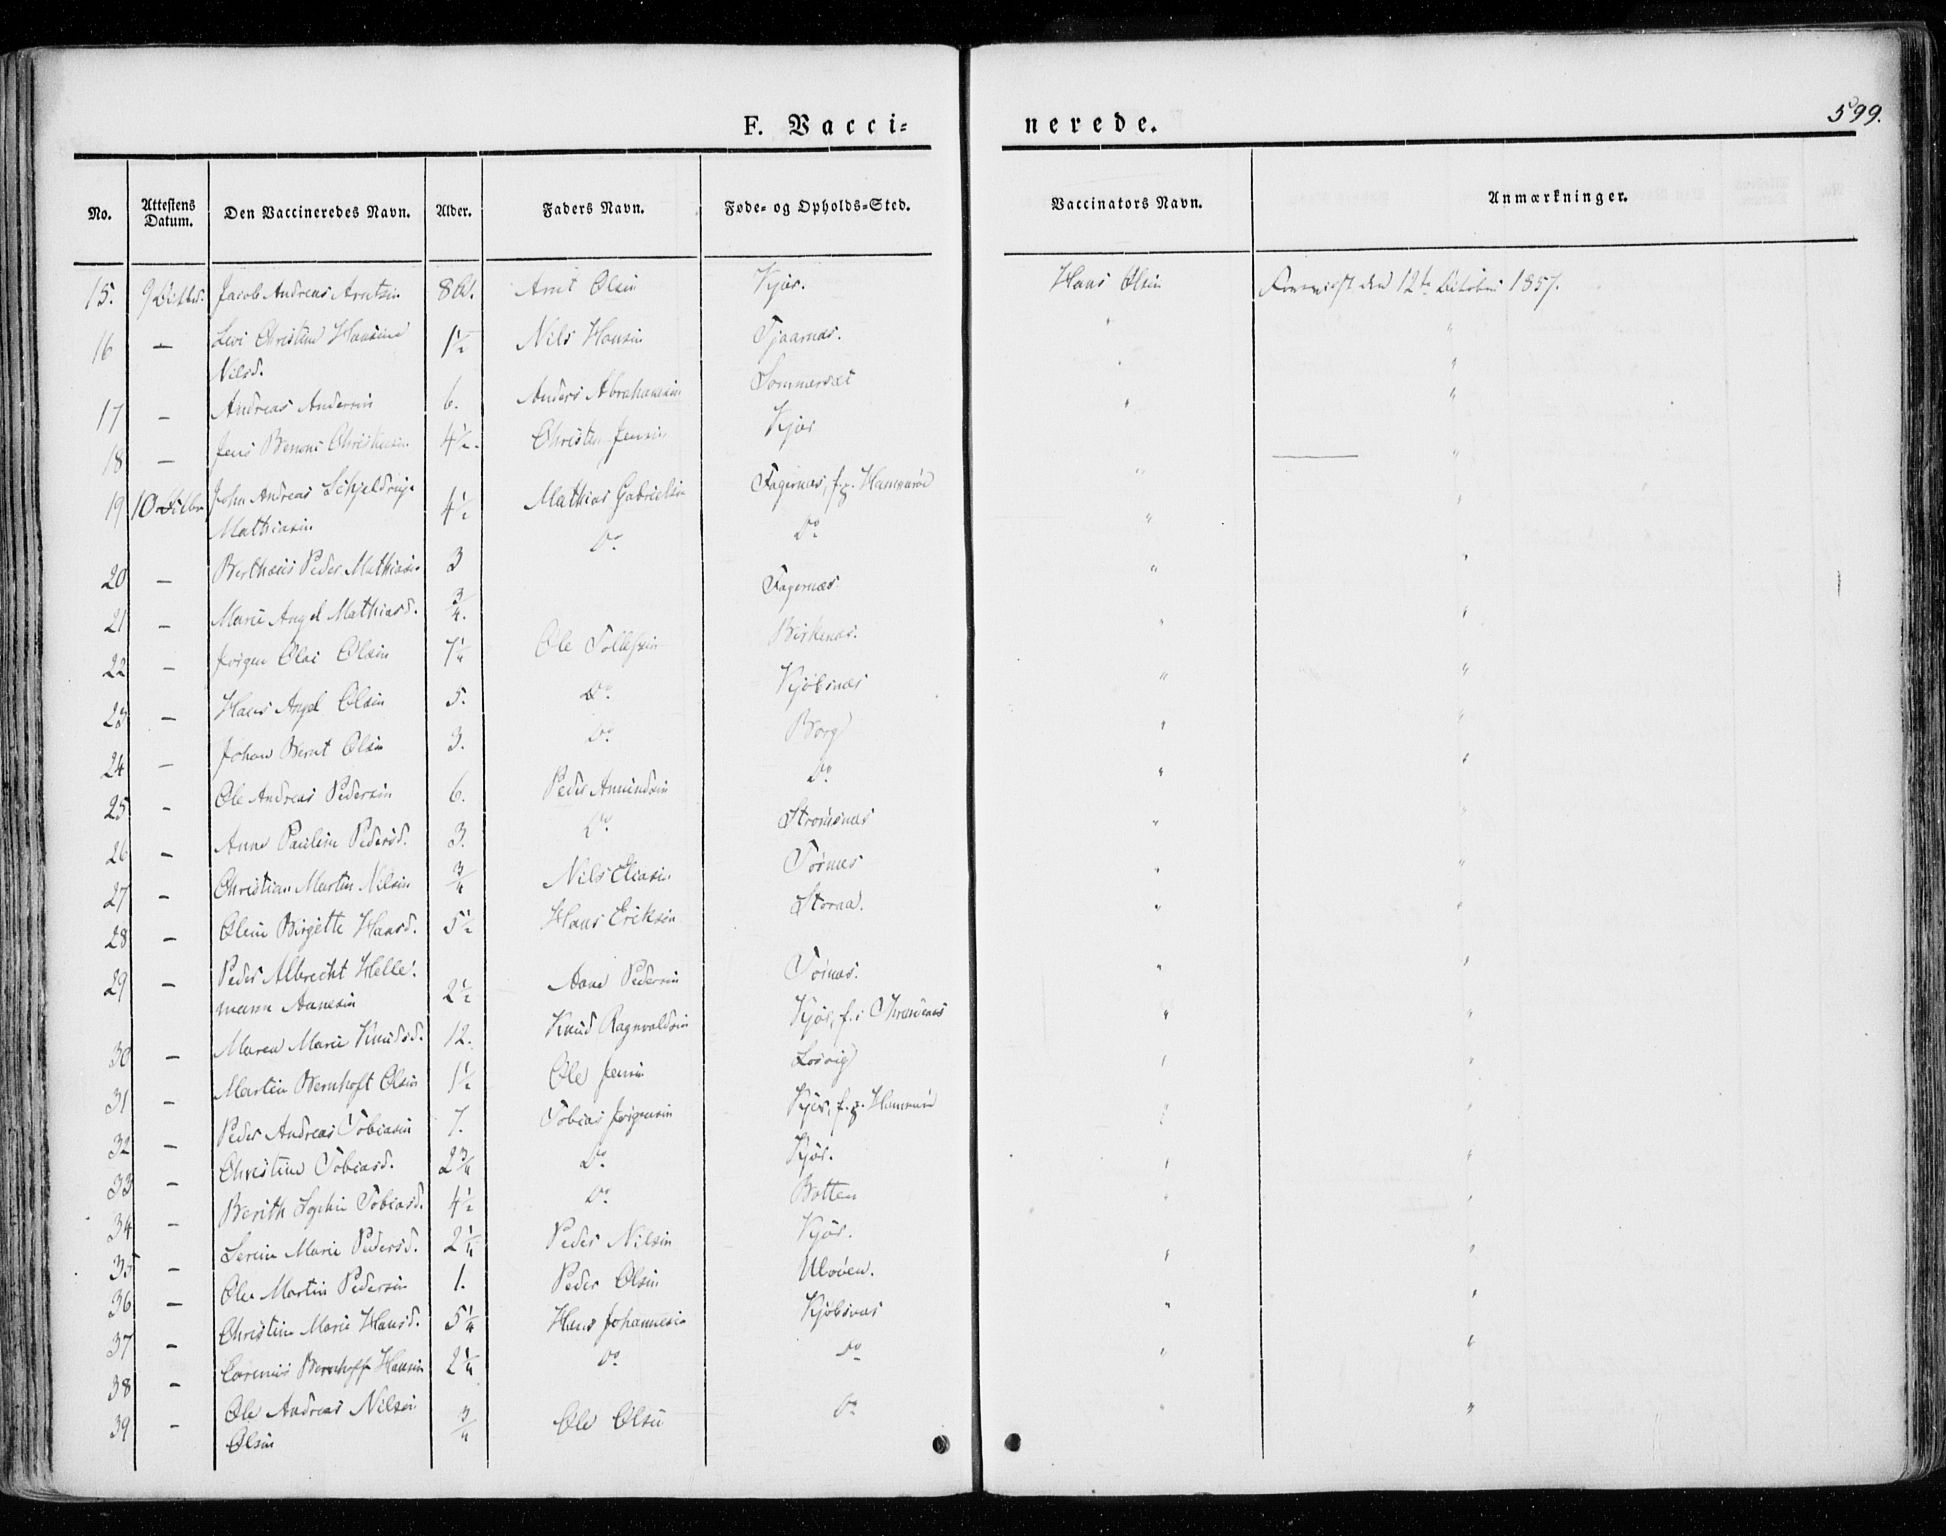 599.
F. Vacci=
nerede.
No. Attestens Datum. Den Vaccineredes Navn. Alder. Faders Navn. Føde- og Opholds-Sted. Vaccinators Navn. Anmærkninger.
15. 9 Jacob Andreas Arntsen 8 Arnt Olsen Kjør. Hans Olsen den 12te 1857.
16 — Levi Christine Hansine 1½ Nils Hansen Tjaarnes. " "
Nilsd.
17 — Andreas Andersen 6. Anders Abrahamsen Sommerset " "
18 — Jens Benoni Christensen 4½. Christen Jensen Kjør " "
19 10 John Andreas Schjeldrup 4½ Mathias Gabrielsen Fagernes, f. p. Hammerø " "
Mathiasen
20 — Berthæus Peder Mathiasen 3 Do Do " "
21 — Marie Angel Mathiasd. ¾. Fagernæs " "
22 — Jørgen Olai Olsen 7¼ Ole Tollefsen Birkenes. " "
23 — Hans Angel Olsen 5. Do Kjøbsnæs " "
24 — Johan Bernt Olsen 3. Do Borg " "
25 - Ole Andreas Pedersen 6. Peder Amundsen Do " "
26 — Anne Pauline Pedersd. 3. Do Strømsnæs " "
27 - Christian Martin Nilsen ¾ Nils Eliasen Tørnes " "
28 — Oline Birgitte Hansd. 5½ Hans Eriksen Storaa. " "
29 — Peder Albrecht Helle- 2½ Aane Pedersen Tørnes. " "
mann Aanesen
30 — Maren Marie Knudsd. 12. Knud Ragnvaldsen Kjør, f. i " "
31 - Martin Bernhoft Olsen 1½ Ole Jensen Løsvig " "
32 — Peder Andreas Tobiasen 7. Tobias Jørgensen Kjør, f. p. Hammerø " "
33 - Christine Tobiasd. 2¾ Do Kjør. " "
34 - Berith Sophie Tobiasd. 4½ Do Botten " "
35 — Serine Marie Pedersd. 2¼ Peder Nilsen Kjør. " "
36 — Ole Martin Pedersen 1. Peder Olsen Uløven. " "
37 - Christine Marie Hansd. 5¼ Hans Johannesen Kjøbsnæs " "
38 - Bernhoff Hansen 2¼ Do Do " "
39 - Ole Andreas Nilsen ¾ Ole Olsen Do " "
Olsen